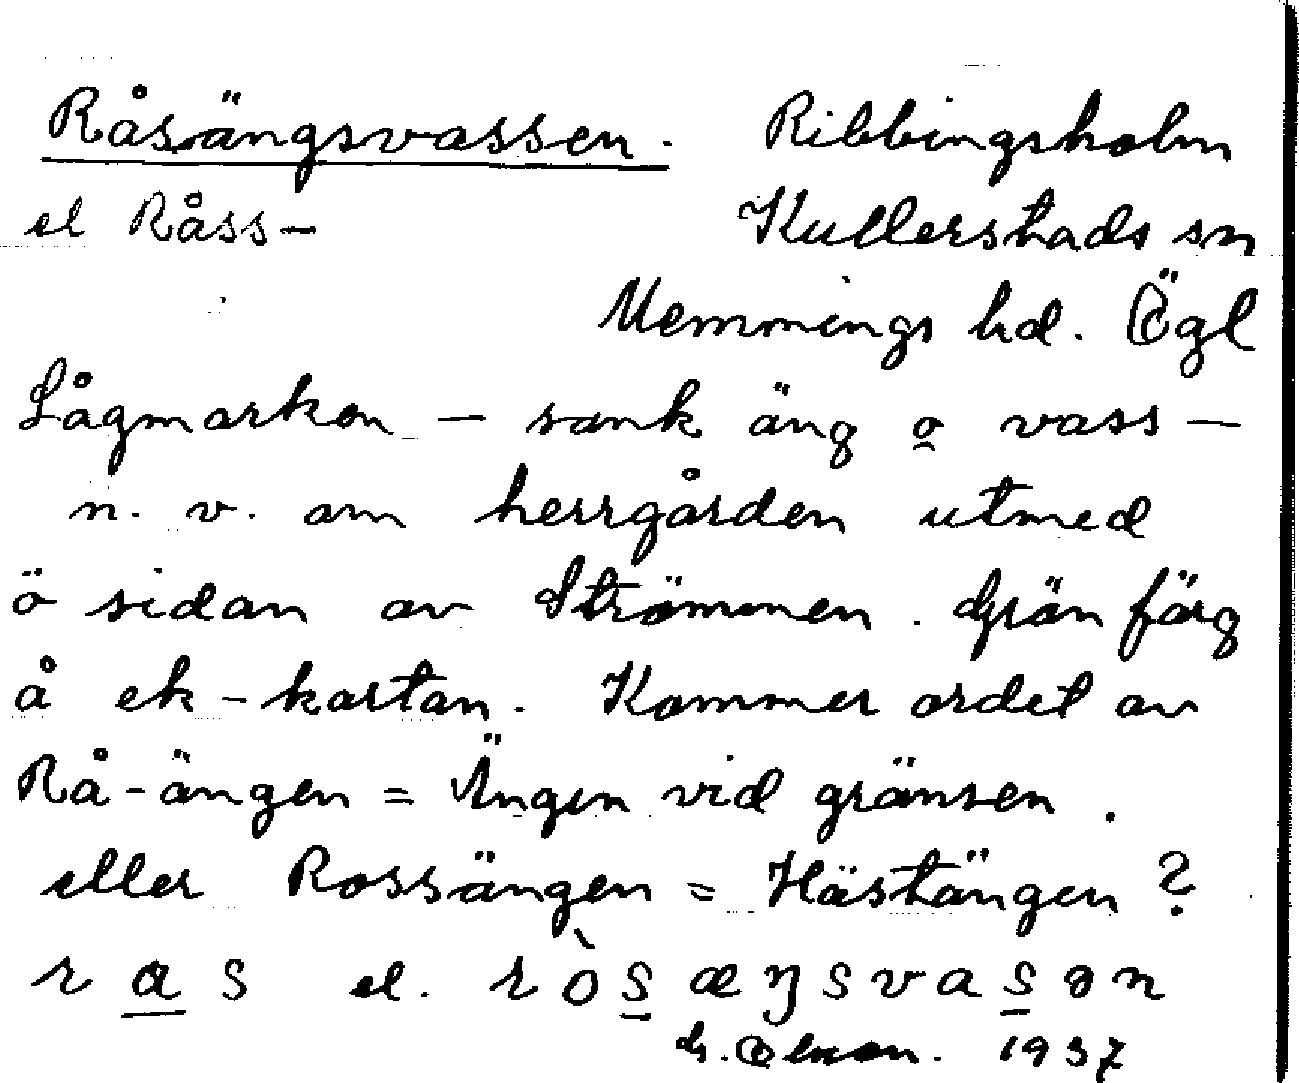 Råsängsvassen. Ribbingsholm
el Råss- Kullerstads sn
Memmings hd. Ögl
Lågmarken - sank äng o vass -
n. v. om herrgården utmed
ö sidan av Strömmen. Grön färg
å ek-kartan. Kommer ordet av
Rå-ängen = Ängen vid gränsen.
eller Rossängen = Hästängen?
r a s el. r ò s æ ŋ s v a s ə n
1937